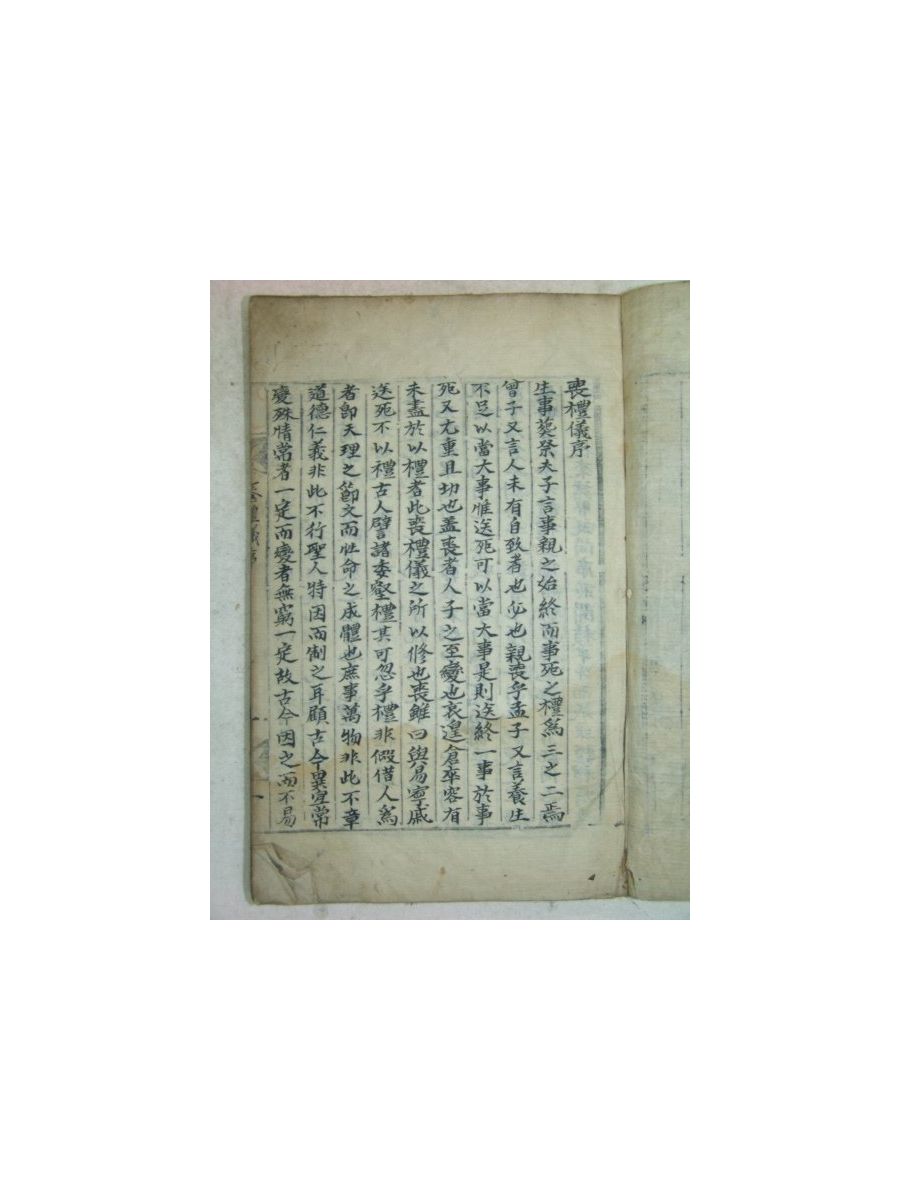 喪禮儀序
生事葬祭夫子言事親之始終而事死之禮爲三之二焉
曾子又言人未有自致者也必也親喪乎孟子又言養生
不足以當大事惟送死可以當大事是則送終一事於事
死又尤重且切也盖喪者人子之至變也哀遑倉卒容有
未盡於以禮者此喪禮儀之所以修也喪雖曰與易寧戚
送死不以禮古人譬諸委壑禮其可忽乎禮非假借人爲
者即天理之節文而性命之成體也庶事萬物非此不章
道德仁義非此不行聖人特因而制之耳顧古今異宜常
變殊情常者一定而變者無窮一定故古今因之而不易
禮儀序